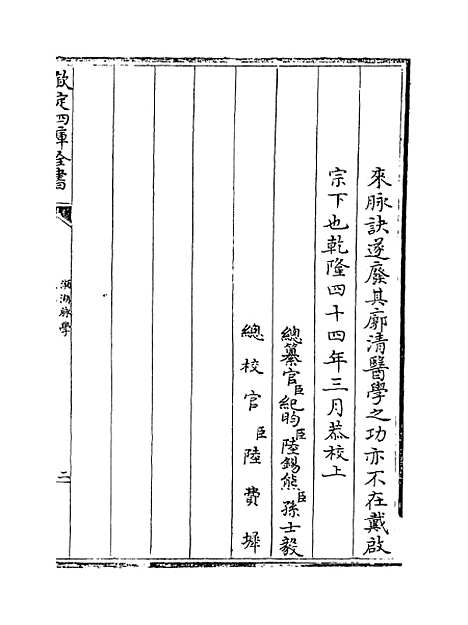 來脉訣遂廢其廓清醫學之功亦不在戴啟
宗下也乾隆四十四年三月恭校上
總纂官臣紀昀臣陸錫熊臣孫士毅
總校官臣陸費墀
欽定四庫全書
瀕湖脉學
二